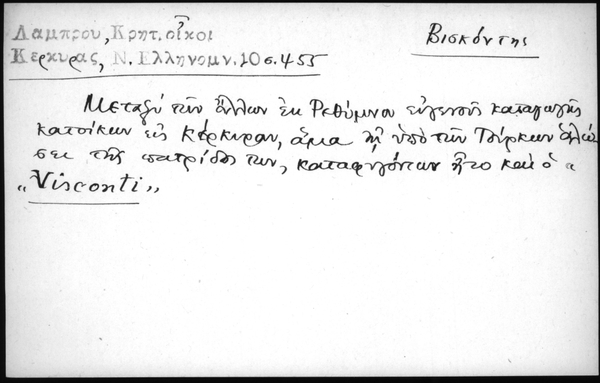 Λαμπρου, Κρητ. οἶκοι
Κερκυρας, Ν. Ελληνομν. 10 σ. 455
Βισκόντης
Μεταξύ τῶν ἄλλων ἐκ Ρεθύμνου εὐγενοῦς καταγωγῆς
κατοίκων εἰς Κέρκυραν, ἅμα τῇ ὑπό τῶν Τούρκων ἁλώ
σει τῆς πατρίδος των, καταφυγόντων ἦτο καί ὁ "
"Visconti"